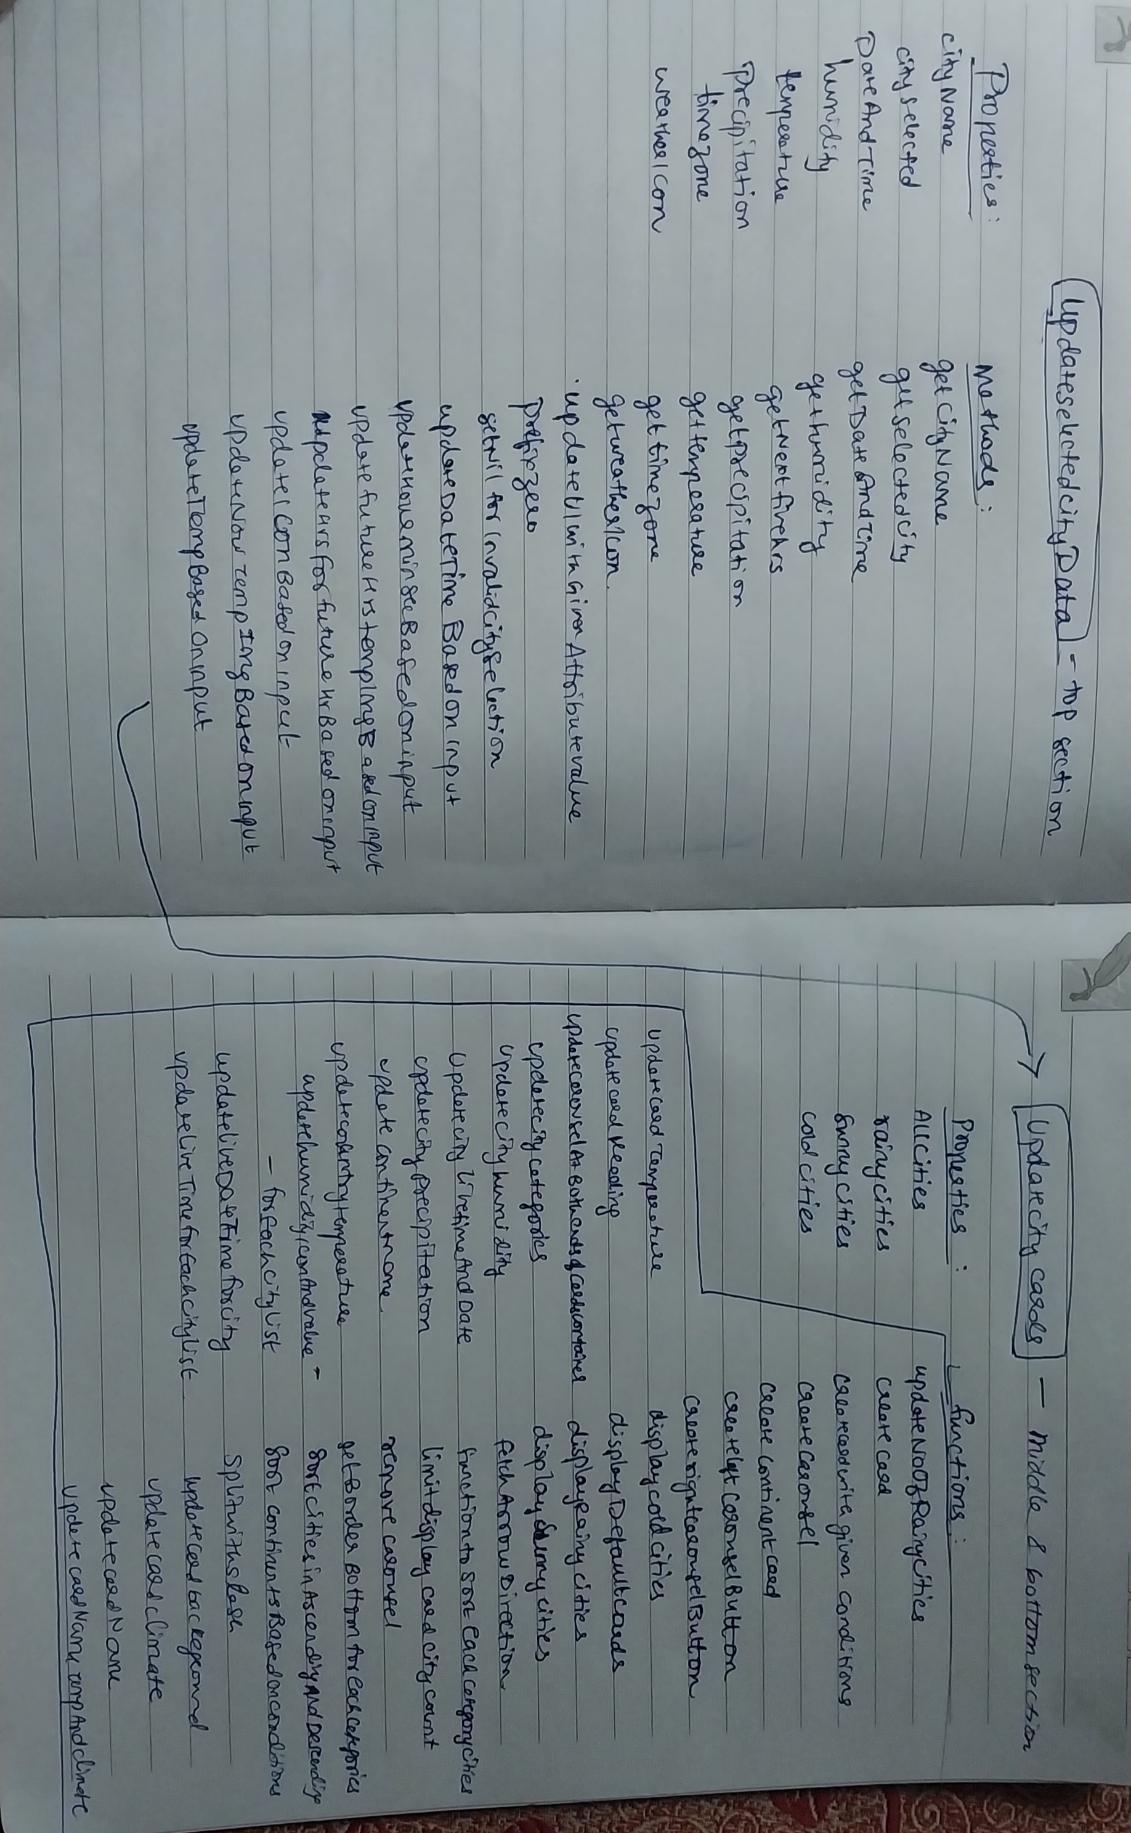 UpdateselectedcityData - top section
Properties:
cityName
cityselected
DateAndTime
humidity
temperature
Precipitation
timezone
weatherIcon
Methods:
getCityName
getselectedcity
getDateAndTime
gethumidity
getNextfivehrs
getprecipitation
gettemperature
gettimezone
getweatherIcon.
updateUIwithGivenAttributevalue
prefixzero
setNil for InvalidcitySelection
updateDateTime Based on input
updateHourminsecBasedoninput
updatefutureHrstempImgBasedoninput
updateHrsforfutureHrBasedoninput
updateIconBasedoninput
updateNowTempImgBasedoninput
updateTempBasedOninput
Updatecity cards - middle & bottom section
Properties :
Allcities
rainycities
sunnycities
coldcities
functions :
updateNoOfRainycities
create card
createcardwith given conditions
createcarousel
create continent card
createleft carouselButton
createrightcarouselButton
displaycoldcities
displayDefaultcards
displayRainycities
displaySunnycities
fetchArrowDirection
functionto sort Eachcategorycities
limitdisplay card city count
remove carousel
getBorder Bottom for Eachcategories
sortcities in Ascending And Descending
sort continentsBasedonconditions
splitwithslash
updatecardbackground
updatecardclimate
updatecardName
updatecardNameTempAndclimate
updatecardTemperature
updatecardHeading
updatecarouselAtBothends of cardscontainer
updatecitycategories
updatecityhumidity
updatecity LivetimeAndDate
updatecityprecipitation
update continentname
updatecountrytemperature
updatehumidityiconAndvalue -
- forEachcitylist
updateliveDateTimeforcity
updateLiveTimeforEachcitylist